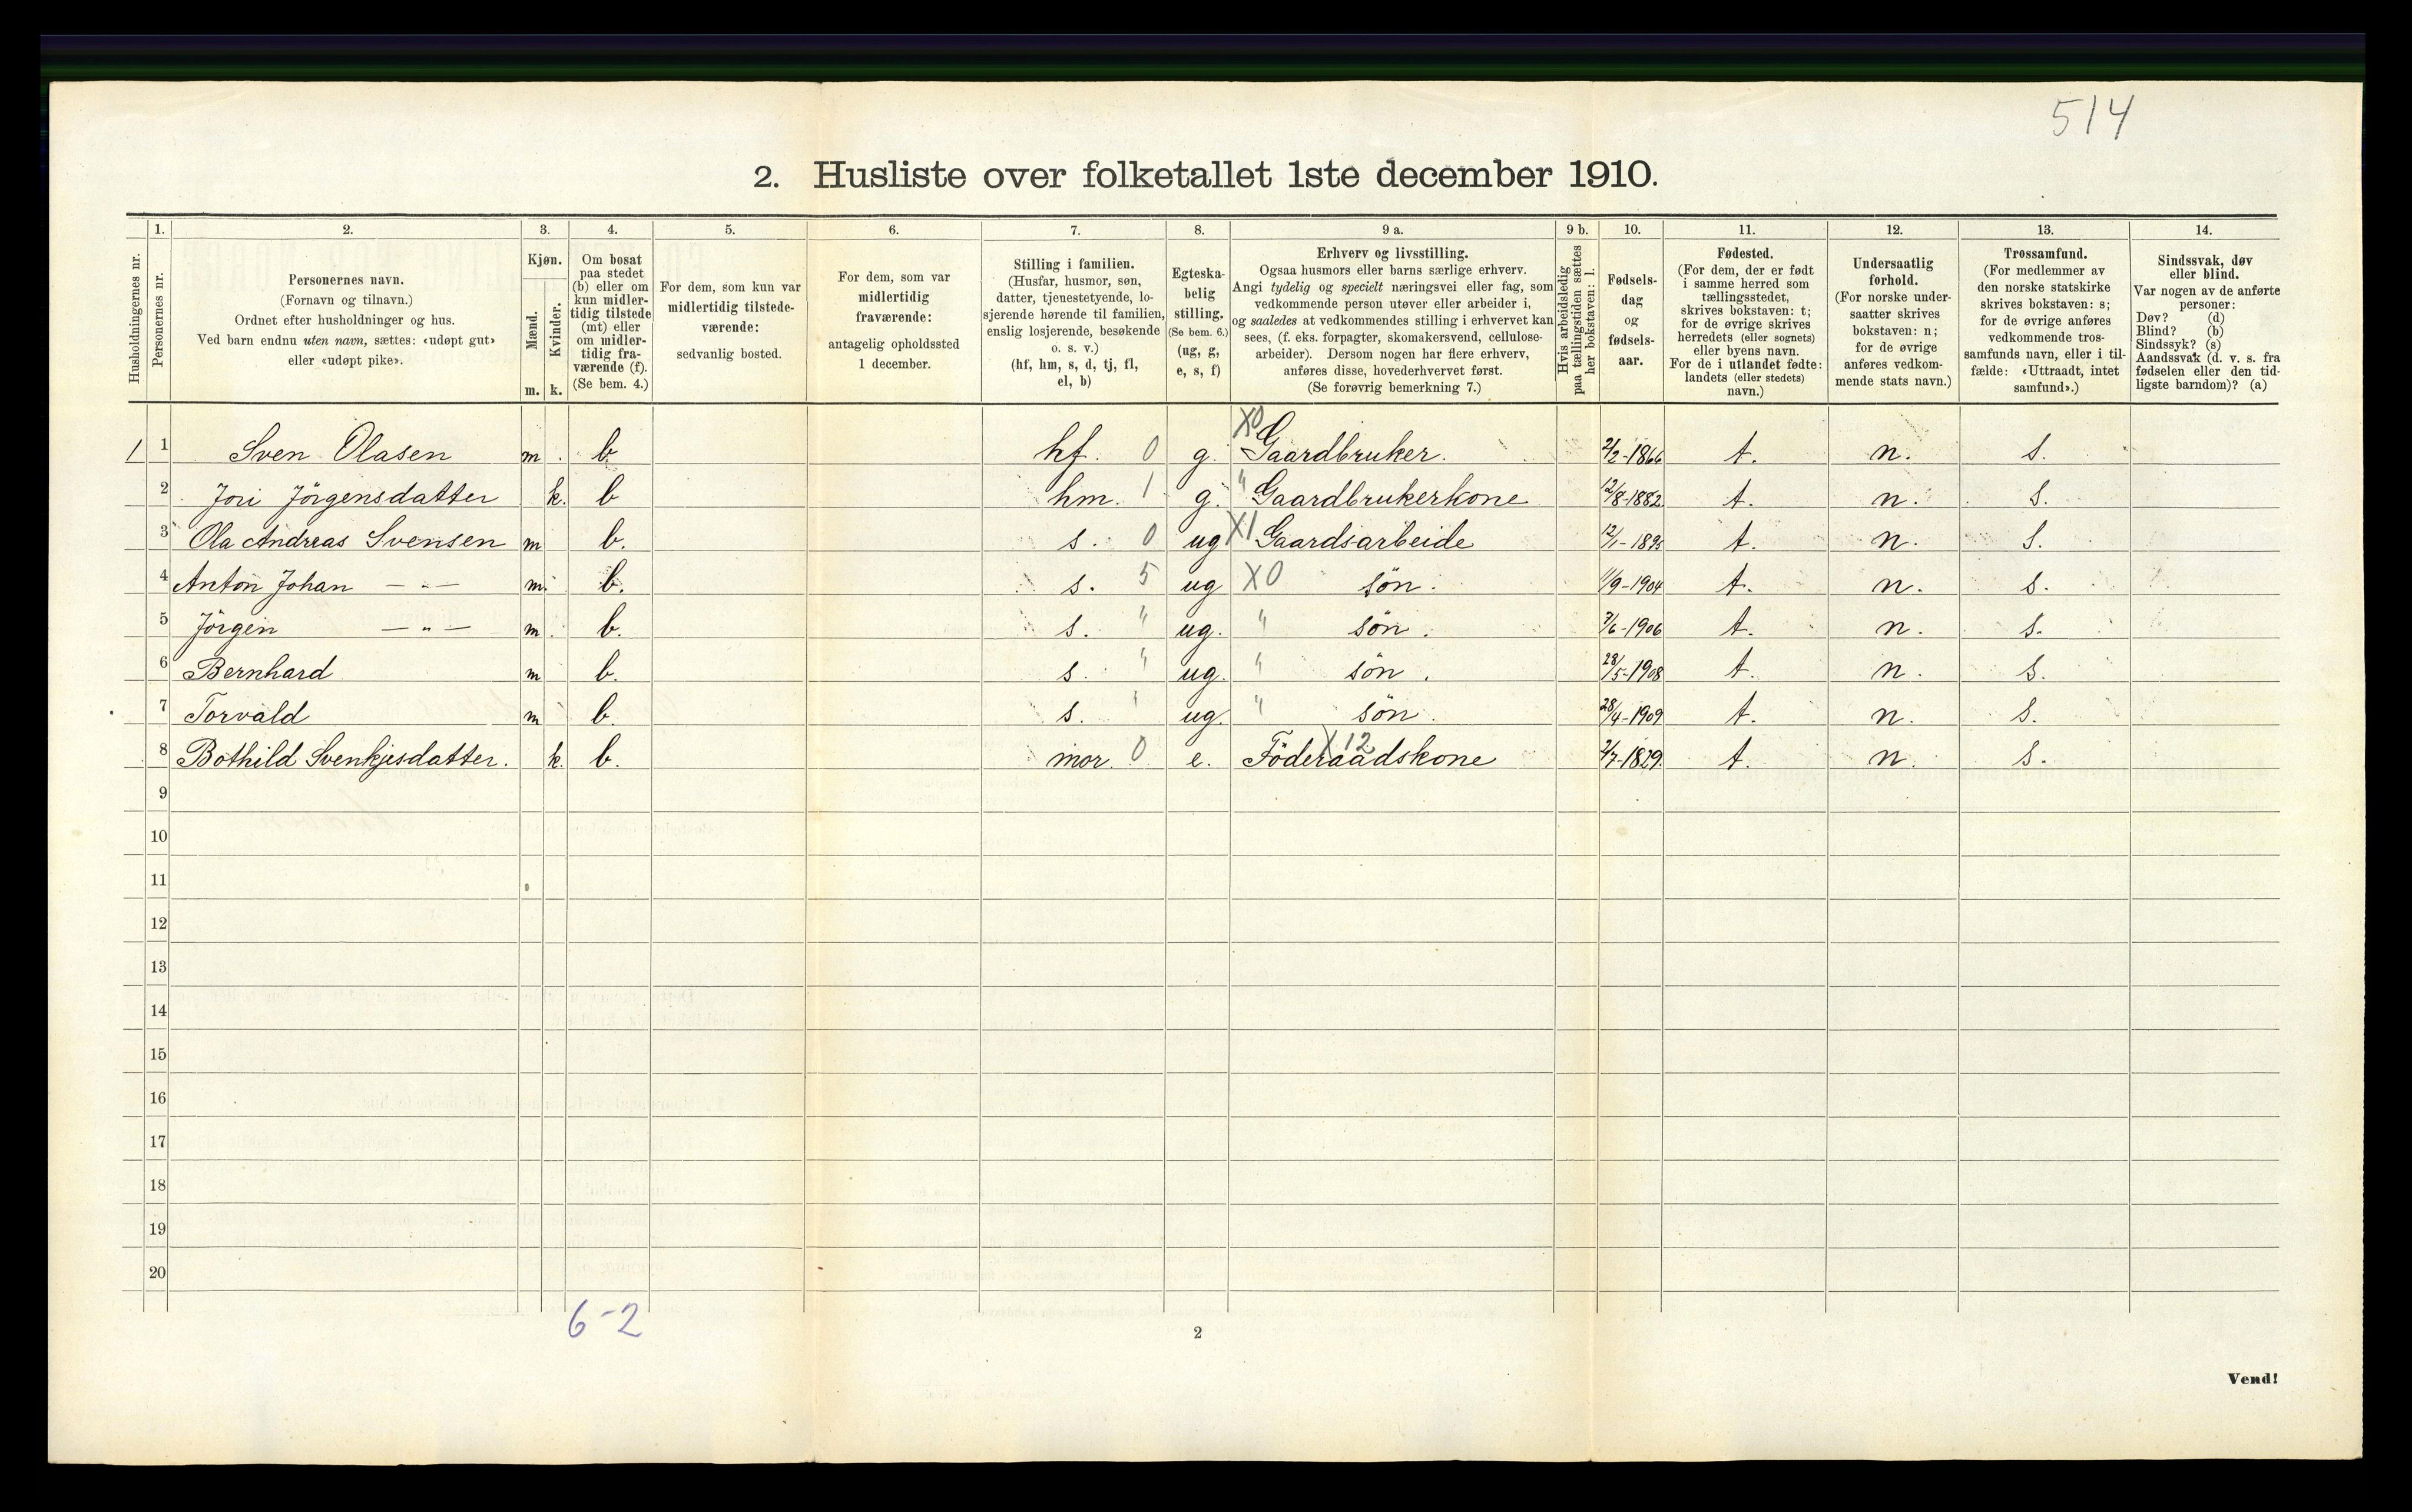 514
2. Husliste over folketallet 1ste december 1910.
Husholdningernes nr.
1. Personernes nr.
2. Personernes navn. (Fornavn og tilnavn.) Ordnet efter husholdninger og hus. Ved barn endnu uten navn, sættes: «udøpt gut» eller «udøpt pike».
3. Kjøn. Mænd. m. Kvinder. k.
4. Om bosat paa stedet (b) eller om kun midler-tidig tilstede (mt) eller om midler-tidig fra-værende (f). (Se bem. 4.)
5. For dem, som kun var midlertidig tilstede-værende: sedvanlig bosted.
6. For dem, som var midlertidig fraværende: antagelig opholdssted 1 december.
7. Stilling i familien. (Husfar, husmor, søn, datter, tjenestetyende, lo-sjerende hørende til familien, enslig losjerende, besøkende o. s. v.) (hf, hm, s, d, tj, fl, el, b)
8. Egteska-belig stilling. (Se bem. 6.) (ug, g, e, s, f)
9 a. Erhverv og livsstilling. Ogsaa husmors eller barns særlige erhverv. Angi tydelig og specielt næringsvei eller fag, som vedkommende person utøver eller arbeider i, og saaledes at vedkommendes stilling i erhvervet kan sees, (f. eks. forpagter, skomakersvend, cellulose-arbeider). Dersom nogen har flere erhverv, anføres disse, hovederhvervet først. (Se forøvrig bemerkning 7.)
9 b. Hvis arbeidsledig paa tællingstiden sættes her bokstaven: l.
10. Fødsels-dag og fødsels-aar.
11. Fødested. (For dem, der er født i samme herred som tællingsstedet, skrives bokstaven: t; for de øvrige skrives herredets (eller sognets) eller byens navn. For de i utlandet fødte: landets (eller stedets) navn.)
12. Undersaatlig forhold. (For norske under-saatter skrives bokstaven: n; for de øvrige anføres vedkom-mende stats navn.)
13. Trossamfund. (For medlemmer av den norske statskirke skrives bokstaven: s; for de øvrige anføres vedkommende tros-samfunds navn, eller i til-fælde: «Uttraadt, intet samfund».)
14. Sindssvak, døv eller blind. Var nogen av de anførte personer: Døv? (d) Blind? (b) Sindssyk? (s) Aandssvak (d. v. s. fra fødselen eller den tid-ligste barndom)? (a)
1 1 Sven Olasen m. b. hf. 0 g. X0 Gaardbruker. 2/2-1866 t. n. s.
2 Jori Jörgensdatter k. b hm. 1 g. " Gaardbrukerkone 12/8-1882 t. n. s.
3 Ola Andreas Svensen m b. s. 0 ug X1 Gaardsarbeide 12/1-1895 t. n. s.
4 Anton Johan — " — m. b. s. 5 ug X0 sön. 11/9-1904 t. n. s.
5 Jörgen — " — m. b. s. " ug. " sön. 7/6-1906 t. n. s.
6 Bernhard m b. s. " ug. " sön. 28/5-1908 t. n. s.
7 Torvald m b. s. " ug. " sön. 28/4-1909 t. n. s.
8 Bothild Svenkjesdatter. k. b. mor 0 e. X12 Föderaadskone 2/7-1829. t. n. s.
9
10
11
12
13
14
15
16
17
18
19
20
6-2
2
Vend!